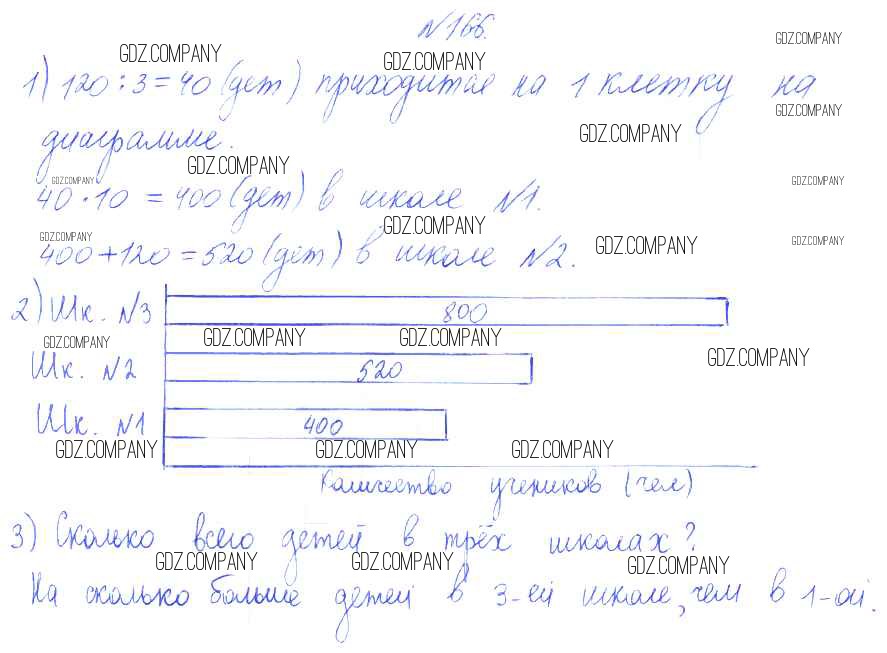 №166.
GDZ.COMPANY GDZ.COMPANY GDZ.COMPANY
1) 120 : 3 = 40 (дет) приходится на 1 клетку на
GDZ.COMPANY GDZ.COMPANY
диаграмме.
GDZ.COMPANY
GDZ.COMPANY GDZ.COMPANY
40 · 10 = 400 (дет) в школе №1.
GDZ.COMPANY GDZ.COMPANY GDZ.COMPANY GDZ.COMPANY
400 + 120 = 520 (дет) в школе №2.
2) Шк. №3 800
GDZ.COMPANY GDZ.COMPANY GDZ.COMPANY GDZ.COMPANY
Шк. №2 520
Шк. №1 400
GDZ.COMPANY GDZ.COMPANY GDZ.COMPANY
Количество учеников (чел)
3) Сколько всего детей в трёх школах?
GDZ.COMPANY GDZ.COMPANY GDZ.COMPANY
На сколько больше детей в 3-ей школе, чем в 1-ой.